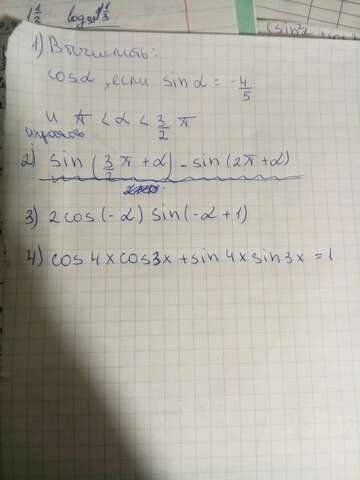 1) Вычислить:
cosα, если sinα = -4/5
и π < α < 3/2 π
2) sin(3/2 π + α) - sin(2π + α)
3) 2cos(-α) sin(-α + 1)
4) cos4x cos3x + sin4x sin3x = 1